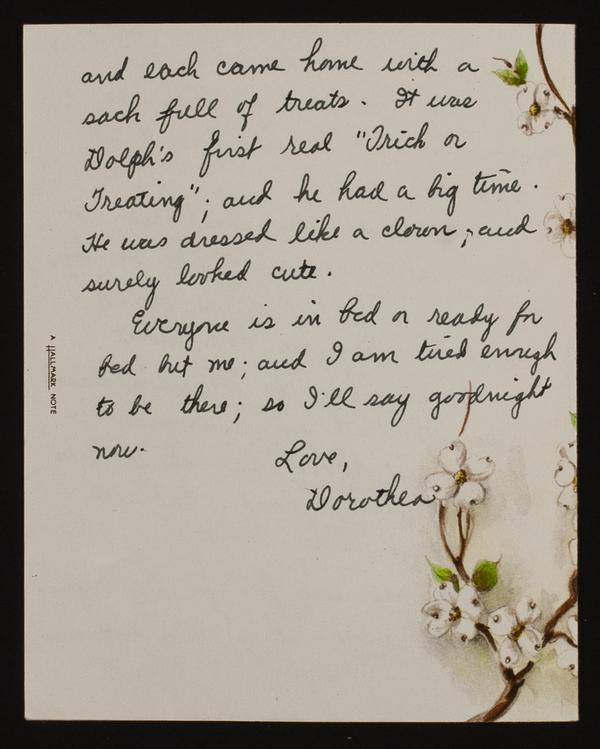 and each came home with a
sack full of treats. It was
Dolph's first real "Trick or
Treating"; and he had a big time.
He was dressed like a clown; and
surely looked cute.
Everyone is in bed or ready for
bed but me; and I am tired enough
to be there; so I'll say goodnight
now.
Love,
Dorothea
A HALLMARK NOTE